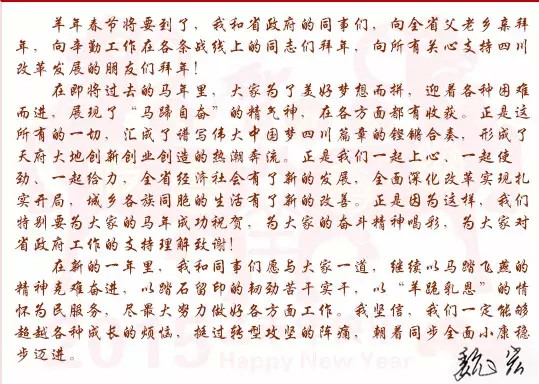 羊年春节将要到了，我和省政府的同事们，向全省父老乡亲拜
年，向辛勤工作在各条战线上的同志们拜年，向所有关心支持四川
改革发展的朋友们拜年！
在即将过去的马年里，大家为了美好梦想而拼，迎着各种困难
而进，展现了“马蹄自奋”的精气神，在各方面都有收获。正是这
所有的一切，汇成了谱写伟大中国梦四川篇章的铿锵合奏，形成了
天府大地创新创业创造的热潮奔流。正是我们一起上心、一起使
劲、一起给力，全省经济社会有了新的发展，全面深化改革实现扎
实开局，城乡各族同胞的生活有了新的改善。正是因为这样，我们
特别要为大家的马年成功祝贺，为大家的奋斗精神喝彩，为大家对
省政府工作的支持理解致谢！
在新的一年里，我和同事们愿与大家一道，继续以马踏飞燕的
精神克难奋进，以踏石留印的韧劲苦干实干，以“羊跪乳恩”的情
怀为民服务，尽最大努力做好各方面工作。我坚信，我们一定能够
超越各种成长的烦恼，挺过转型攻坚的阵痛，朝着同步全面小康稳
步迈进。
魏宏
2015
Happy New Year